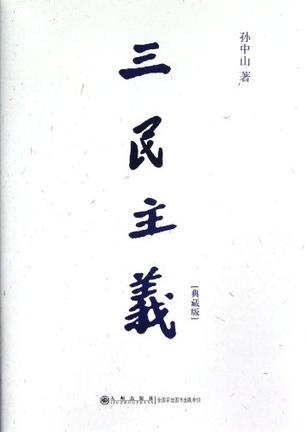 孙中山 著
三民主義
[典藏版]
九州出版社
JIUZHOUPRESS
全国百佳图书出版单位